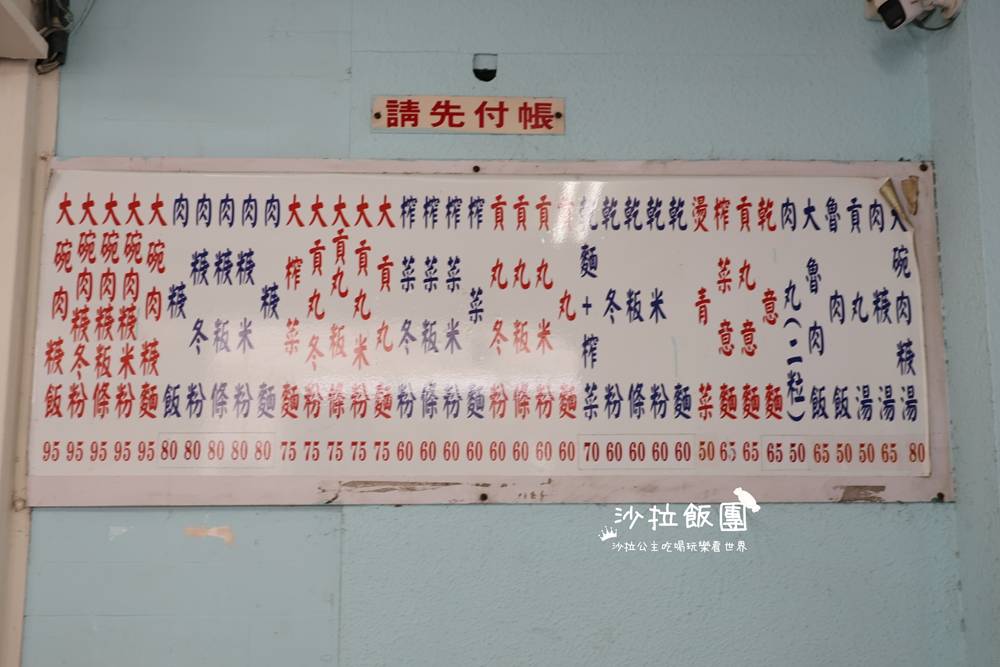 請先付帳
大碗肉粳飯 95
大碗肉粳冬粉 95
大碗肉粳粄條 95
大碗肉粳米粉 95
大碗肉粳麵 95
肉粳飯 80
肉粳冬粉 80
肉粳粄條 80
肉粳米粉 80
肉粳麵 80
大榨菜麵 75
大貢丸冬粉 75
大貢丸粄條 75
大貢丸米粉 75
大貢丸麵 75
榨菜冬粉 60
榨菜粄條 60
榨菜米粉 60
榨菜麵 60
貢丸冬粉 60
貢丸粄條 60
貢丸米粉 60
貢丸麵 60
乾麵+榨菜 70
乾冬粉 60
乾粄條 60
乾米粉 60
乾麵 60
燙青菜 50
榨菜意麵 65
貢丸意麵 65
乾意麵 65
肉丸(二粒) 50
大魯肉飯 65
魯肉飯 50
貢丸湯 50
肉粳湯 65
大碗肉粳湯 80
沙拉飯團
沙拉公主吃喝玩樂看世界